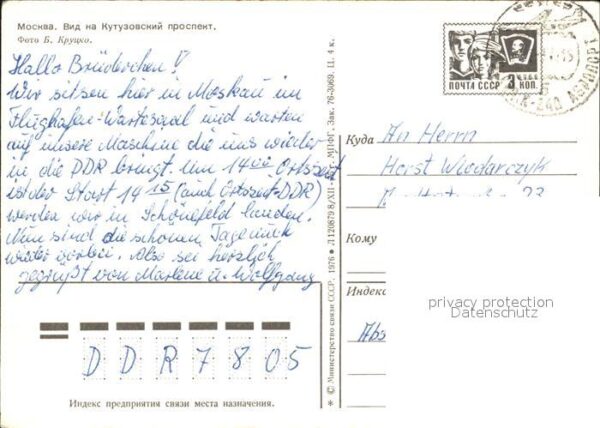 Москва. Вид на Кутузовский проспект.
Фото Б. Круцко.
Hallo Brüderchen!
Wir sitzen hier in Moskau im
Flughafen-Wartesaal und warten
auf unsere Maschine die uns wieder
in die DDR bringt. Um 14 00 Ortszeit
ist der Start 14 15 (auch Ortszeit-DDR)
werden wir in Schönefeld landen.
Nun sind die schönen Tage
wieder vorbei. Also sei herzlich
gegrüßt von Marlene u. Wolfgang
DDR 7805
Индекс предприятия связи места назначения.
* © Министерство связи СССР. 1976 ● Л 120879 8/XII - МПФГ. Зак. 76-3069. Ц. 4 к.
ПОЧТА СССР 3 КОП.
Куда An Herrn
Horst Wlodarczyk
23
Кому
Индекс
Abs
privacy protection
Datenschutz